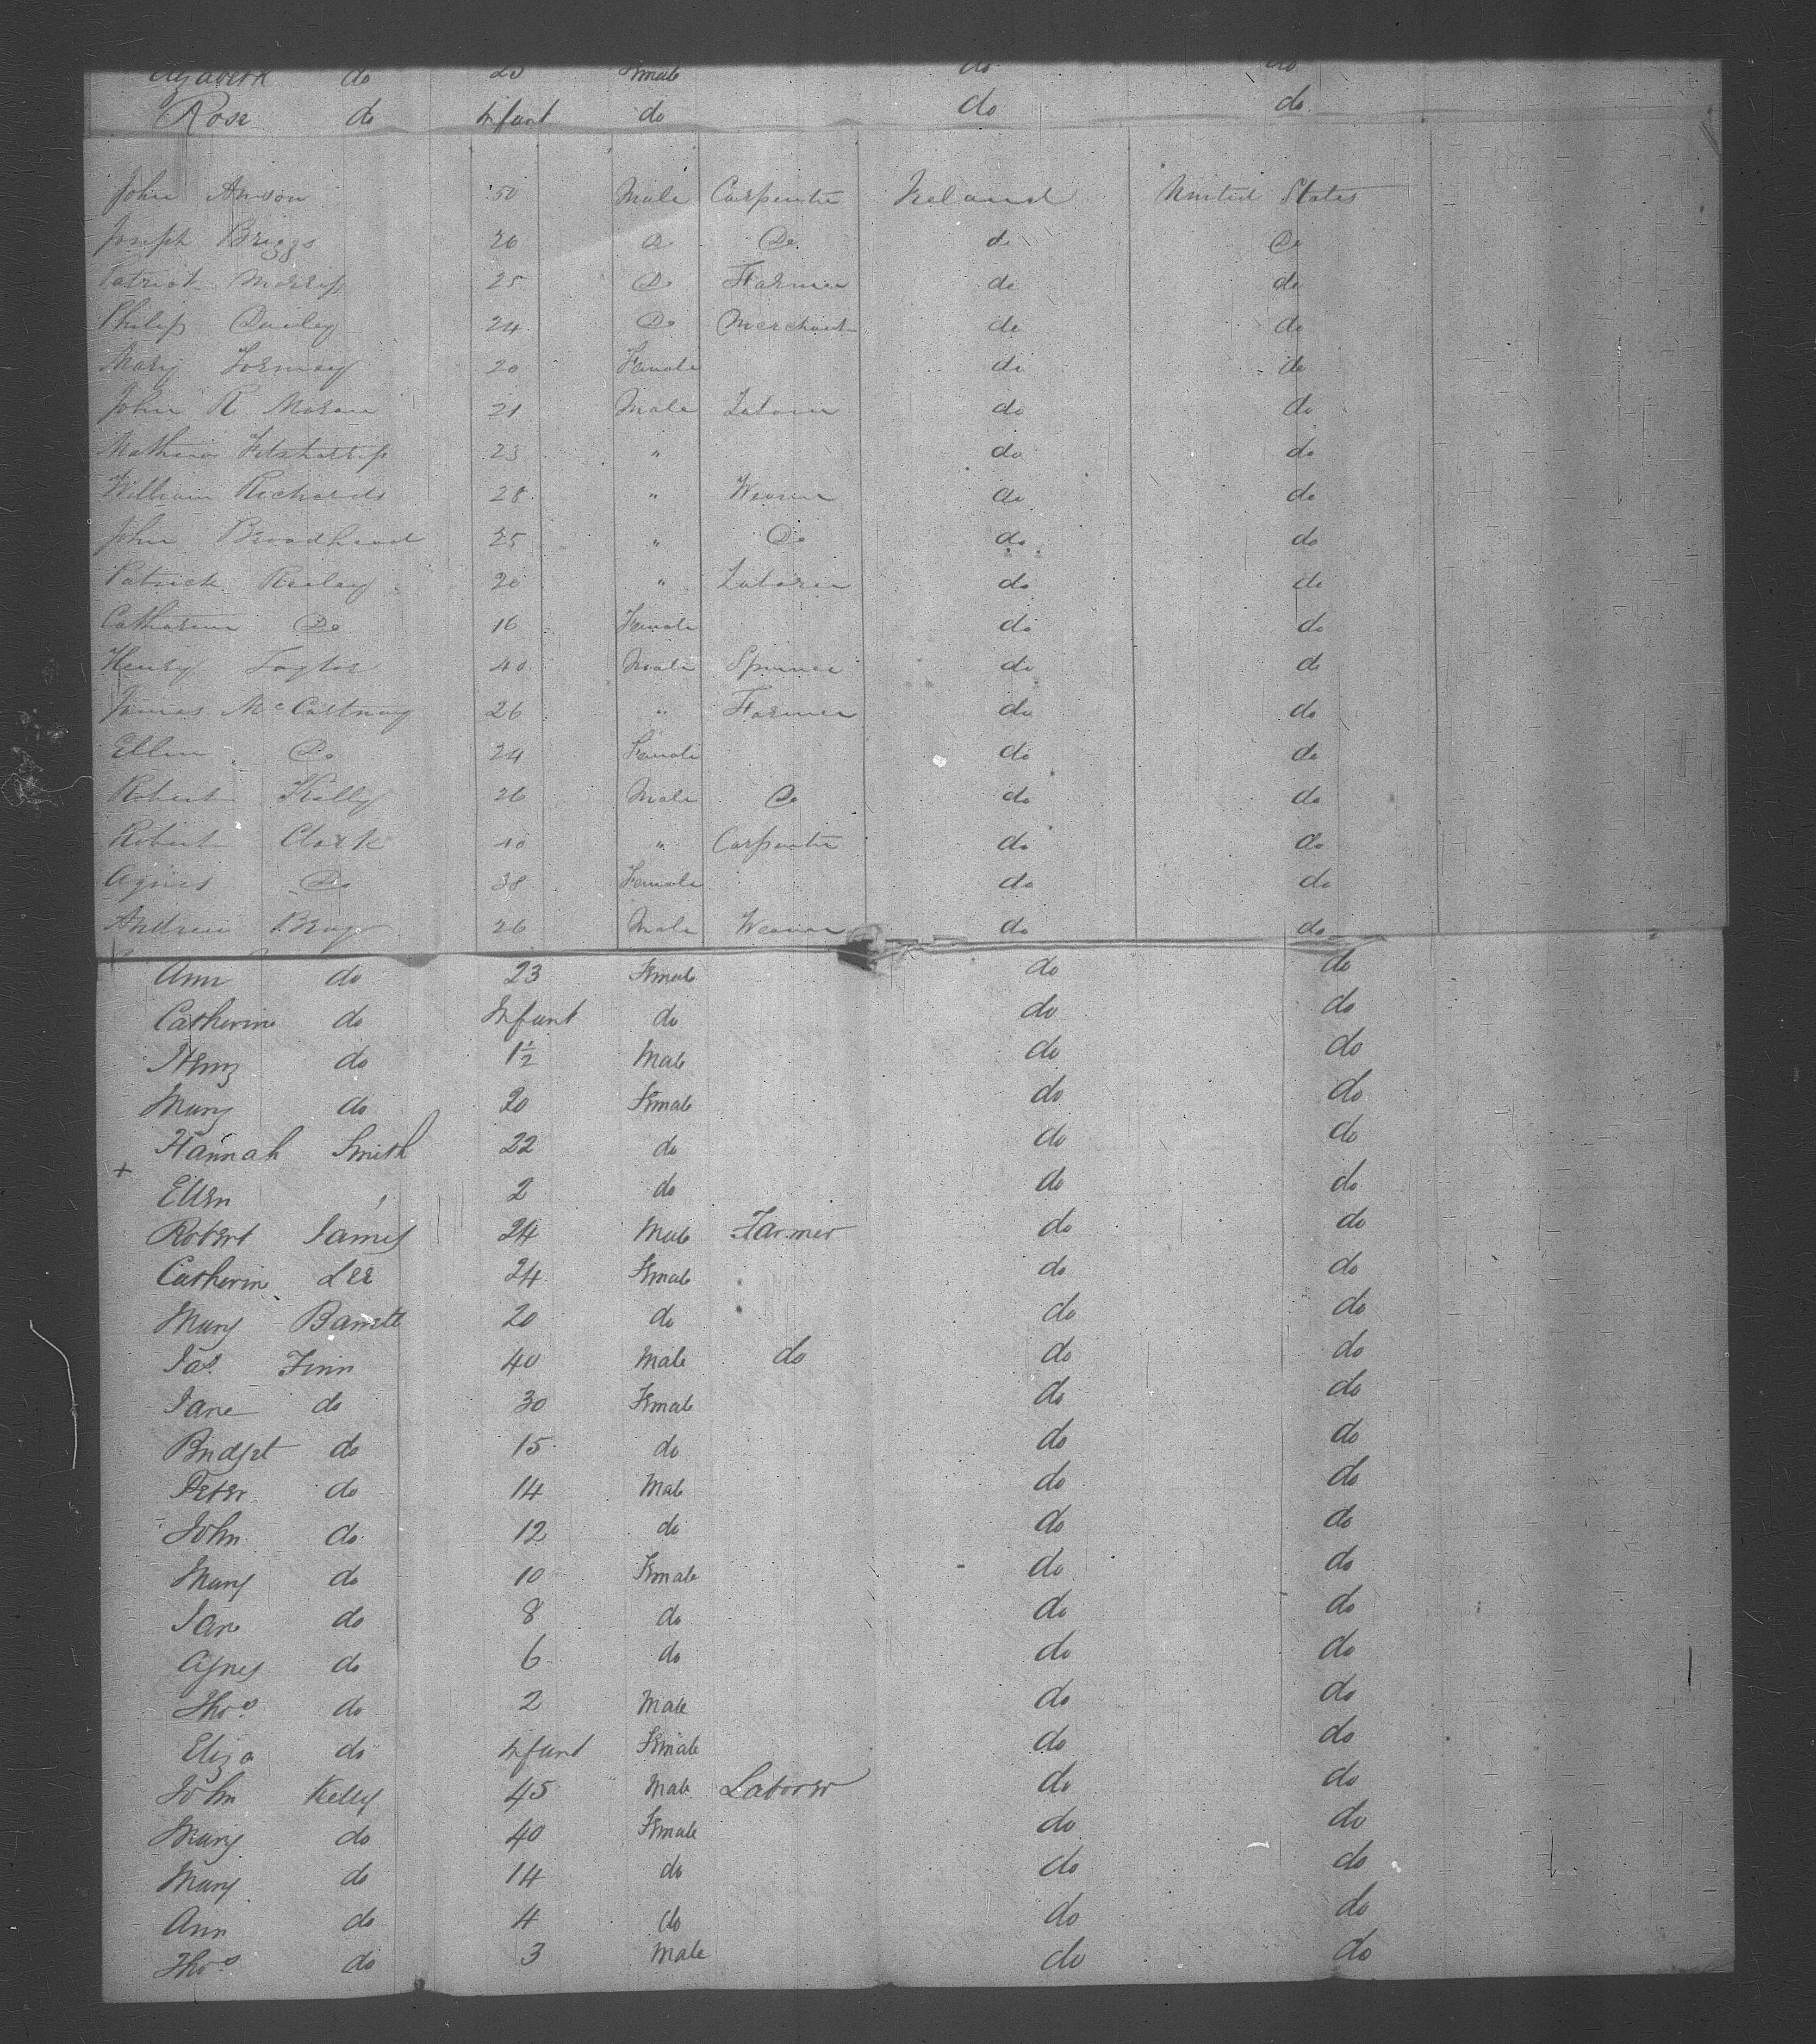 Elizabeth do 20 Female do do
Rose do Infant do do do
John Anson 50 Male Carpenter Ireland United States
Joseph Briggs 26 Do Do do Do
Patrick Morris 25 Do Farmer do do
Philip Dailey 24 Do Merchant do do
Mary Tormey 20 Female do do
John R Moran 21 Male Laborer do do
Mathew 23 " do do
William Richards 28 " Weaver do do
John Broadhead 35 " Do do do
Patrick Reiley 20 " Laborer do do
Catharine Do 16 Female do do
Henry Taylor 40 Male Spinner do do
James McCartney 26 " Farmer do do
Ellen Do 24 Female do do
Robert Kelly 26 Male Do do do
Robert Clark 40 " Carpenter do do
Agnes Do 38 Female do do
Andrew Bray 26 Male Weaver do do
Ann do 23 Female do do
Catherine do Infant do do do
Henry do 1½ Male do do
Mary do 20 Female do do
Hannah Smith 22 do do do
+ Ellen 2 do do do
Robert James 24 Male Farmer do do
Catherine Lee 24 Female do do
Mary Barrett 20 do do do
Jas. Finn 40 Male do do do
Jane do 30 Female do do
Bridget do 15 do do do
Peter do 14 Male do do
John do 12 do do do
Mary do 10 Female do do
Jane do 8 do do do
Agnes do 6 do do do
Thos do 2 Male do do
Eliza do Infant Female do do
John Kelly 45 Male Laborer do do
Mary do 40 Female do do
Mary do 14 do do do
Ann do 4 do do do
Thos do 3 Male do do